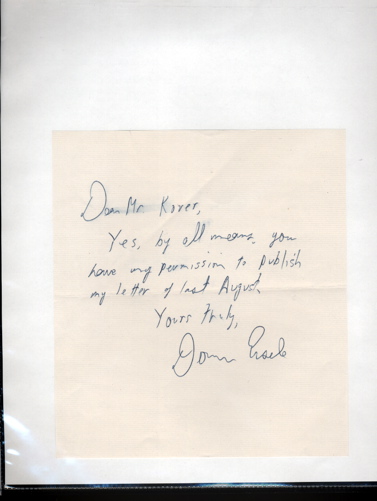 Dear Mr. Korer,
Yes, by all means, you
have my permission to publish
my letter of last August.
Yours truly,
Donn Eisele